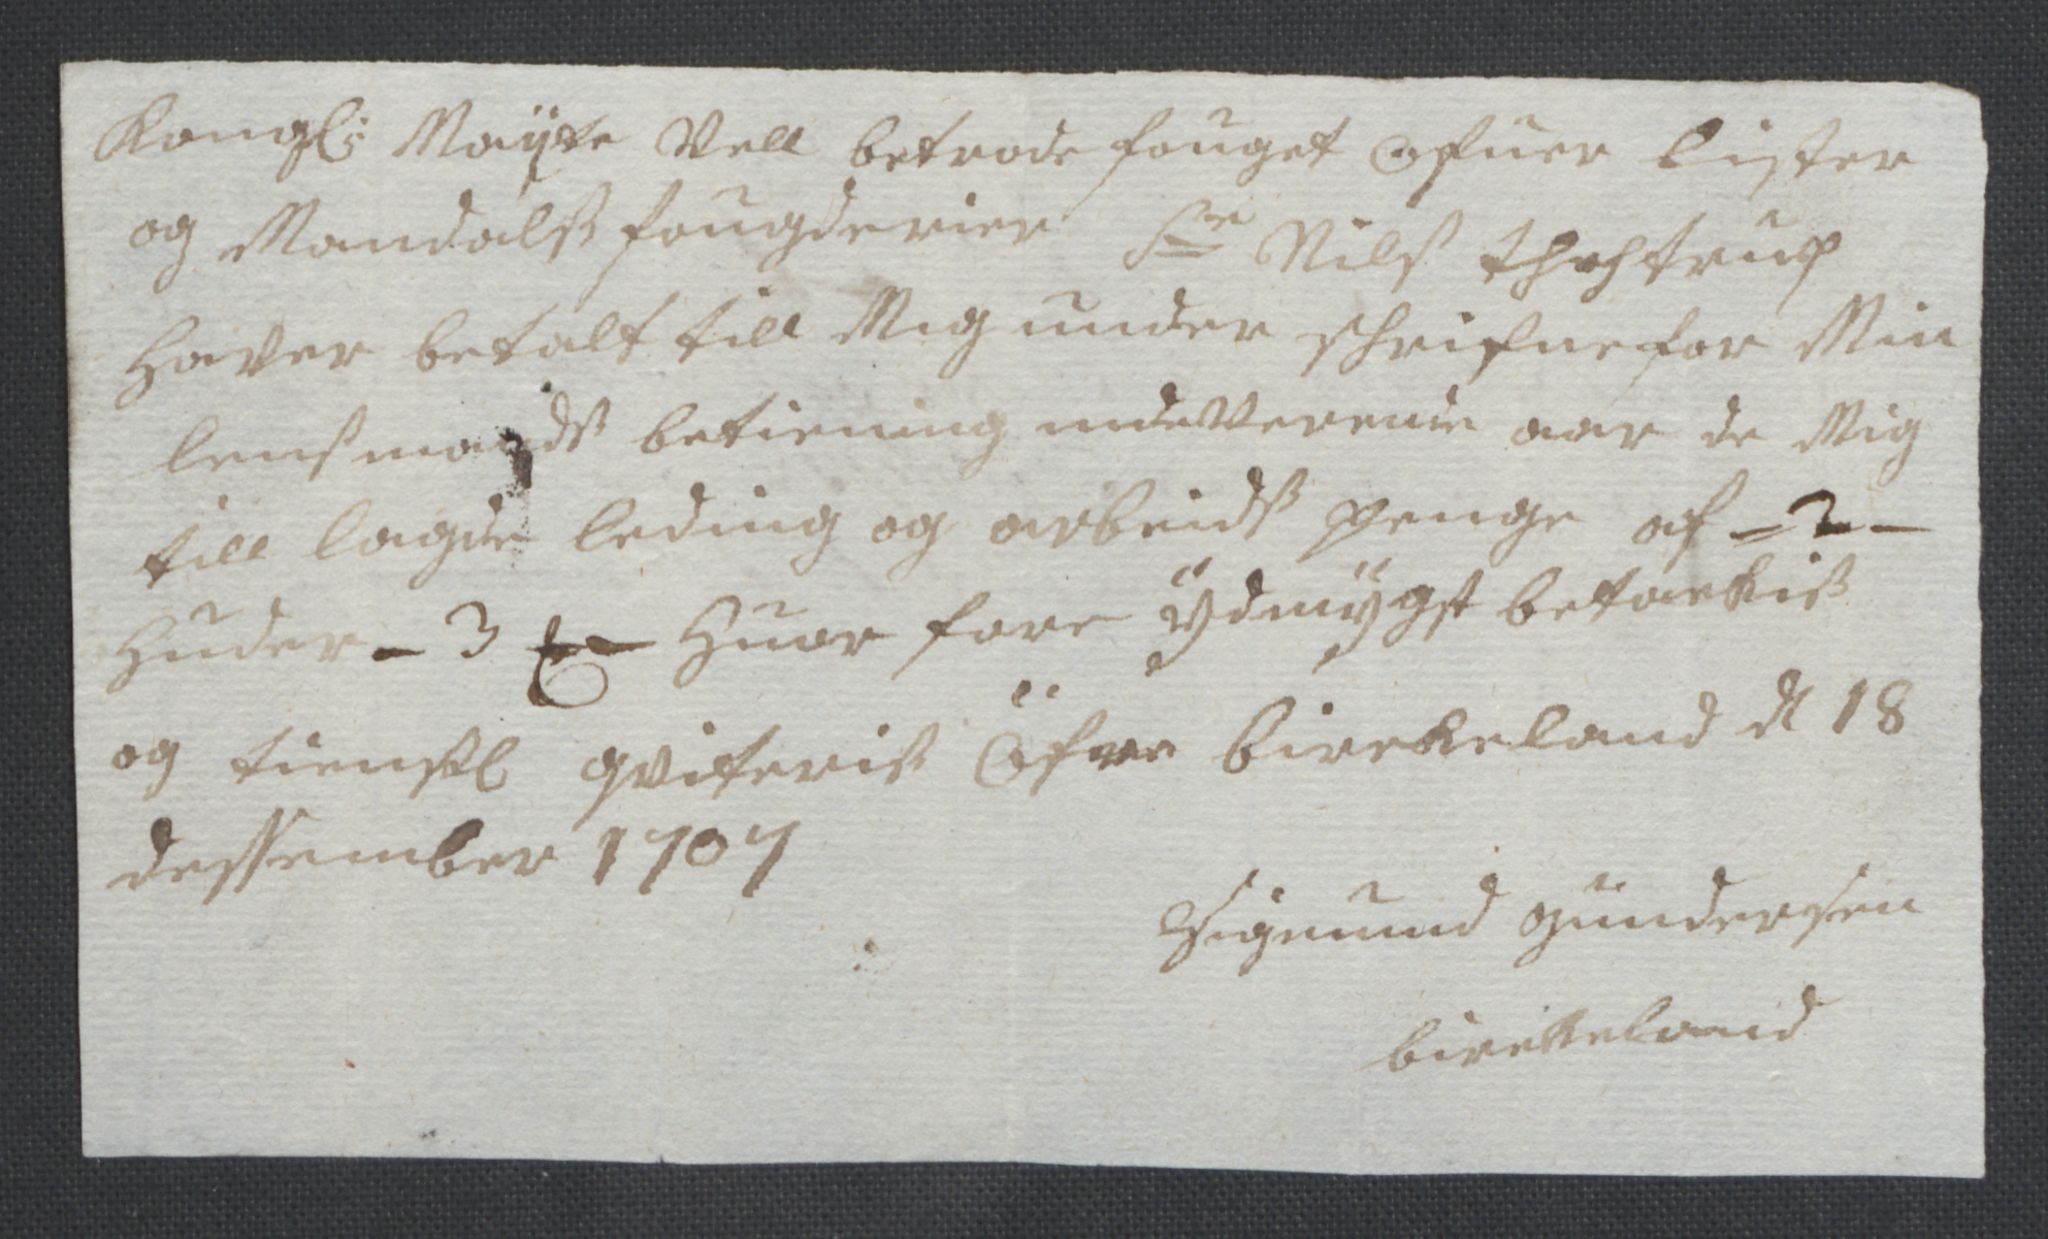 Kongl: Mayte Vell betrode fouget ofuer Lister
og Mandalß fougderier Sr Nilß Thestrup
Haver betalt till Mig under schrifne for Min
lenßmands betiening inde Verende aar de Mig
till lagde leding og arbeids penge af - 2 -
Huder - 3 Huor fore ÿdmÿgst betackis
og tienstl qviteris Öfre birckeland d 18
dessember 1707
Sigmund gundersen
birckeland